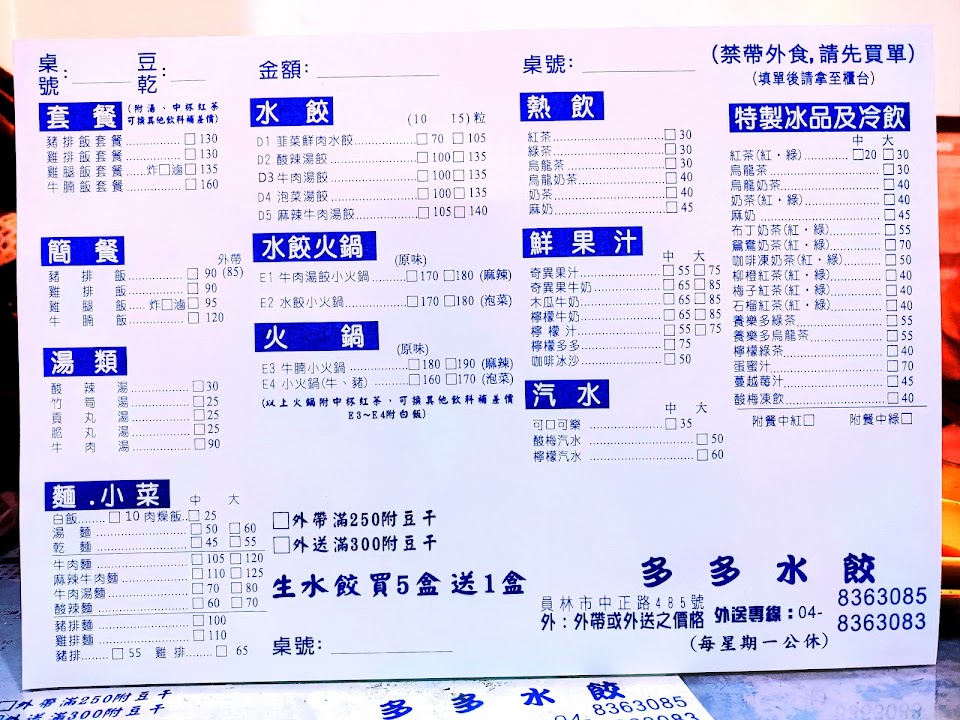 桌號:
豆乾:
金額:
桌號:
(禁帶外食,請先買單)
(填單後請拿至櫃台)
套餐
(附湯、中杯紅茶
可換其他飲料補差價)
豬排飯套餐 □ 130
雞排飯套餐 □ 130
雞腿飯套餐 炸□滷□ 135
牛腩飯套餐 □ 160
簡餐
外帶
豬排飯 □ 90 (85)
雞排飯 □ 90
雞腿飯 炸□滷□ 95
牛腩飯 □ 120
湯類
酸辣湯 □30
竹筍湯 □25
貢丸湯 □25
脆丸湯 □25
牛肉湯 □90
麵.小菜
中 大
白飯 □ 10 肉燥飯 □ 25
湯麵 □50 □60
乾麵 □45 □55
牛肉麵 □105 □120
麻辣牛肉麵 □110 □125
牛肉湯麵 □70 □80
酸辣麵 □60 □70
豬排麵 □100
雞排麵 □110
豬排 □ 55 雞排 □ 65
水餃
(10 15)粒
D1 韭菜鮮肉水餃 □70 □105
D2 酸辣湯餃 □100□135
D3 牛肉湯餃 □100□135
D4 泡菜湯餃 □100□135
D5 麻辣牛肉湯餃 □105□140
水餃火鍋
(原味)
E1 牛肉湯餃小火鍋 □170 □180 (麻辣)
E2 水餃小火鍋 □170 □180 (泡菜)
火鍋
(原味)
E3 牛腩小火鍋 □180 □190 (麻辣)
E4 小火鍋(牛、豬) □160 □170 (泡菜)
(以上火鍋附中杯紅茶,可換其他飲料補差價
E3~E4附白飯)
□外帶滿250附豆干
□外送滿300附豆干
生水餃買5盒送1盒
桌號:
熱飲
紅茶 □30
綠茶 □30
烏龍茶 □30
烏龍奶茶 □40
奶茶 □40
麻奶 □45
鮮果汁
中 大
奇異果汁 □55□75
奇異果牛奶 □65□85
木瓜牛奶 □65□85
檸檬牛奶 □65□85
檸檬汁 □55□75
檸檬多多 □75
咖啡冰沙 □50
汽水
中 大
可口可樂 □35
酸梅汽水 □50
檸檬汽水 □60
特製冰品及冷飲
中 大
紅茶(紅·綠) □20 □30
烏龍茶 □30
烏龍奶茶 □40
奶茶(紅·綠) □40
麻奶 □45
布丁奶茶(紅·綠) □55
鴛鴦奶茶(紅·綠) □70
咖啡凍奶茶(紅·綠) □50
柳橙紅茶(紅·綠) □40
梅子紅茶(紅·綠) □40
石榴紅茶(紅·綠) □40
養樂多綠茶 □55
養樂多烏龍茶 □55
檸檬綠茶 □40
蛋蜜汁 □70
蔓越莓汁 □45
酸梅凍飲 □40
附餐中紅□ 附餐中綠□
多多水餃
員林市中正路485號
外:外帶或外送之價格
外送專線:04-
8363085
8363083
(每星期一公休)
□外帶滿250附豆干
外送滿300附豆干
多多水餃
04-
8363085
8363083